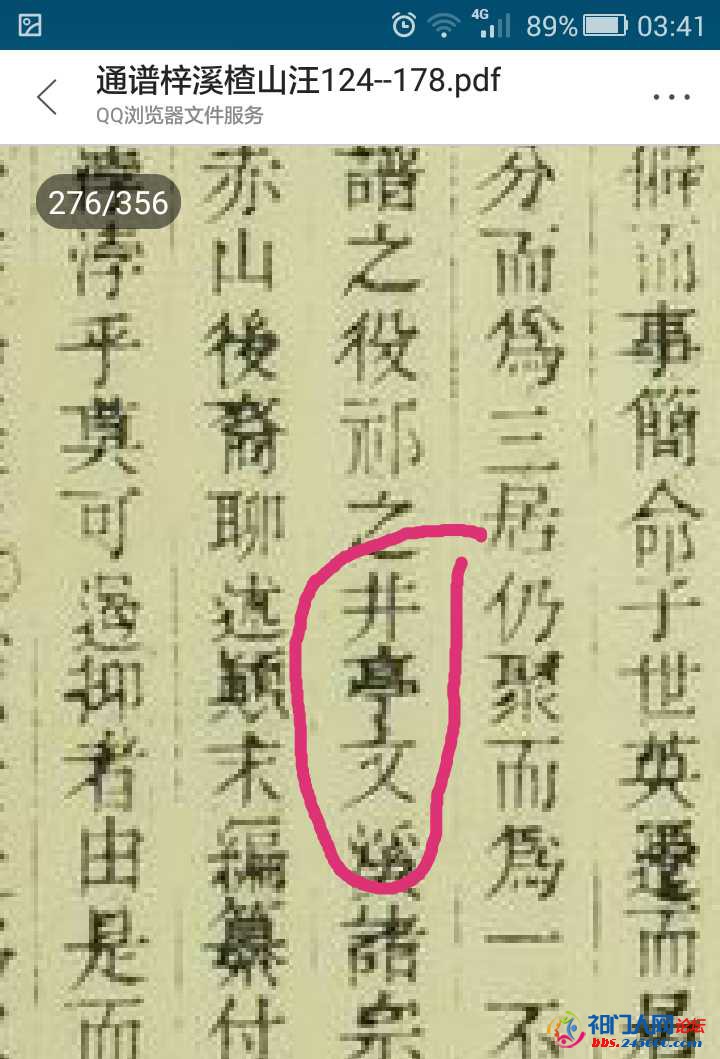 4G
89%
03:41
通谱梓溪楂山汪124--178.pdf
QQ浏览器文件服务
276/356
解而事簡命子世英遷而居
分而為三居仍聚而為一不
譜之役祁之井亭文溪諸宗
赤山後裔聊述顛末編纂付
浡乎莫可遏抑者由是而
祁门人网论坛